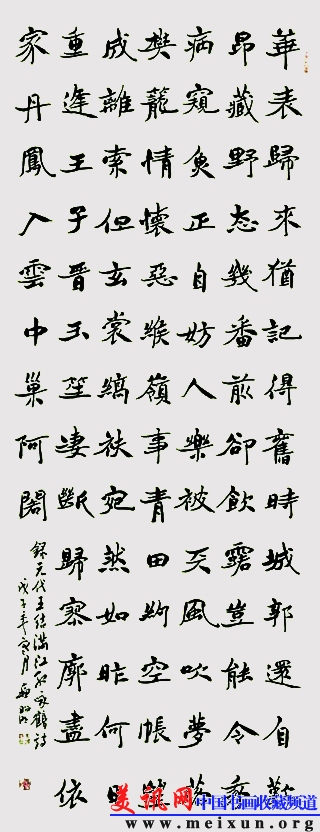 華表歸來猶記得舊時城郭還自歎
昂藏野态幾番前卻飲露豈能令
病窺魚正自妨人樂被天風吹夢落
樊籠情懷惡緱嶺事青田約空帳
成離索但玄裳縞袂宛然如昨何日
重逢王子晉玉笙淒斷歸寥廓盡依
家丹鳳入雲中巢阿閣
録元代王结滿江红詠鶴詩
戊子年寒月
美讯网
中国书画收藏频道
www.meixun.org